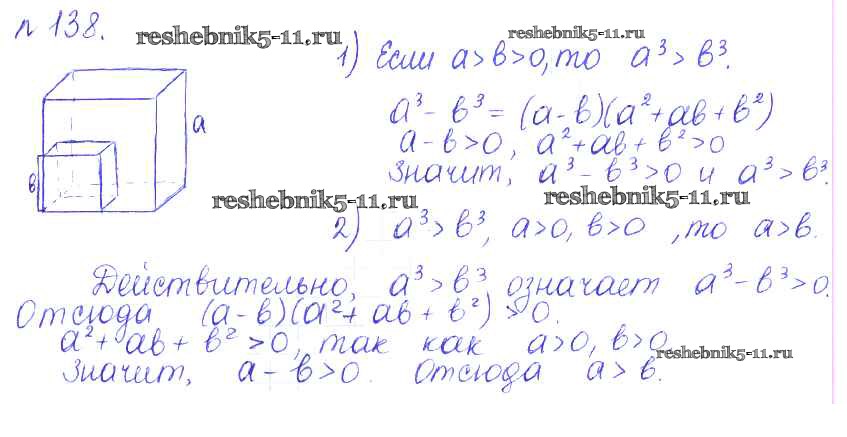 № 138.
reshebnik5-11.ru
reshebnik5-11.ru
1) Если a>b>0, то a³>b³.
a
a³-b³=(a-b)(a²+ab+b²)
a-b>0, a²+ab+b²>0
Значит, a³-b³>0 и a³>b³.
b
reshebnik5-11.ru
reshebnik5-11.ru
2) a³>b³, a>0, b>0, то a>b.
Действительно, a³>b³ означает a³-b³>0.
Отсюда (a-b)(a²+ab+b²)>0.
a²+ab+b²>0, так как a>0, b>0
reshebnik5-11.ru
Значит, a-b>0. Отсюда a>b.